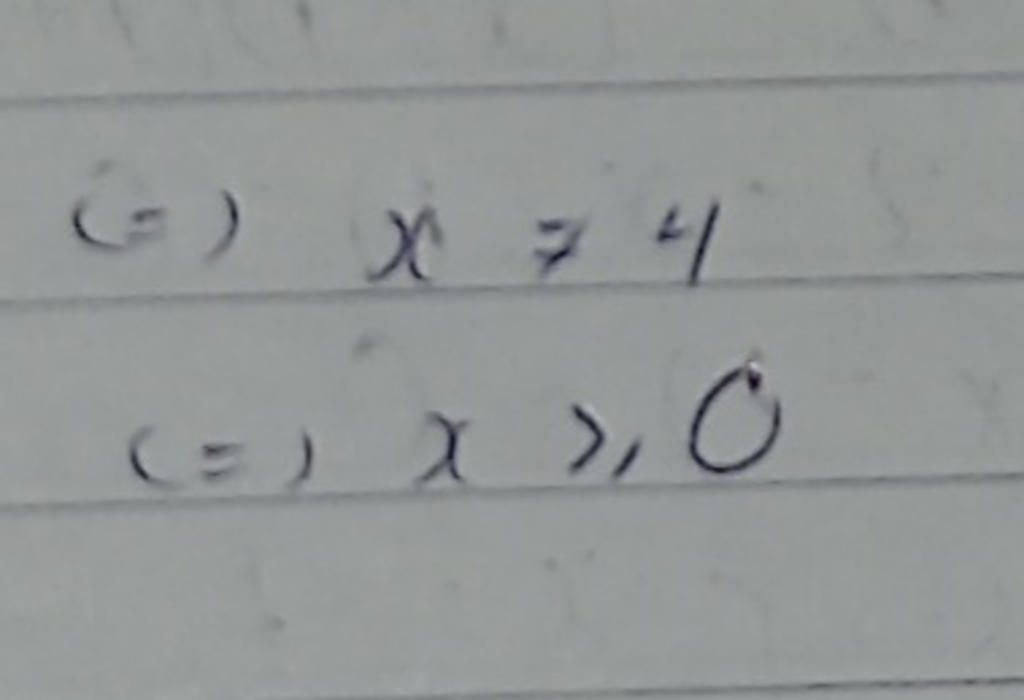 (=) x ≠ 4
(=) x ≥ 0